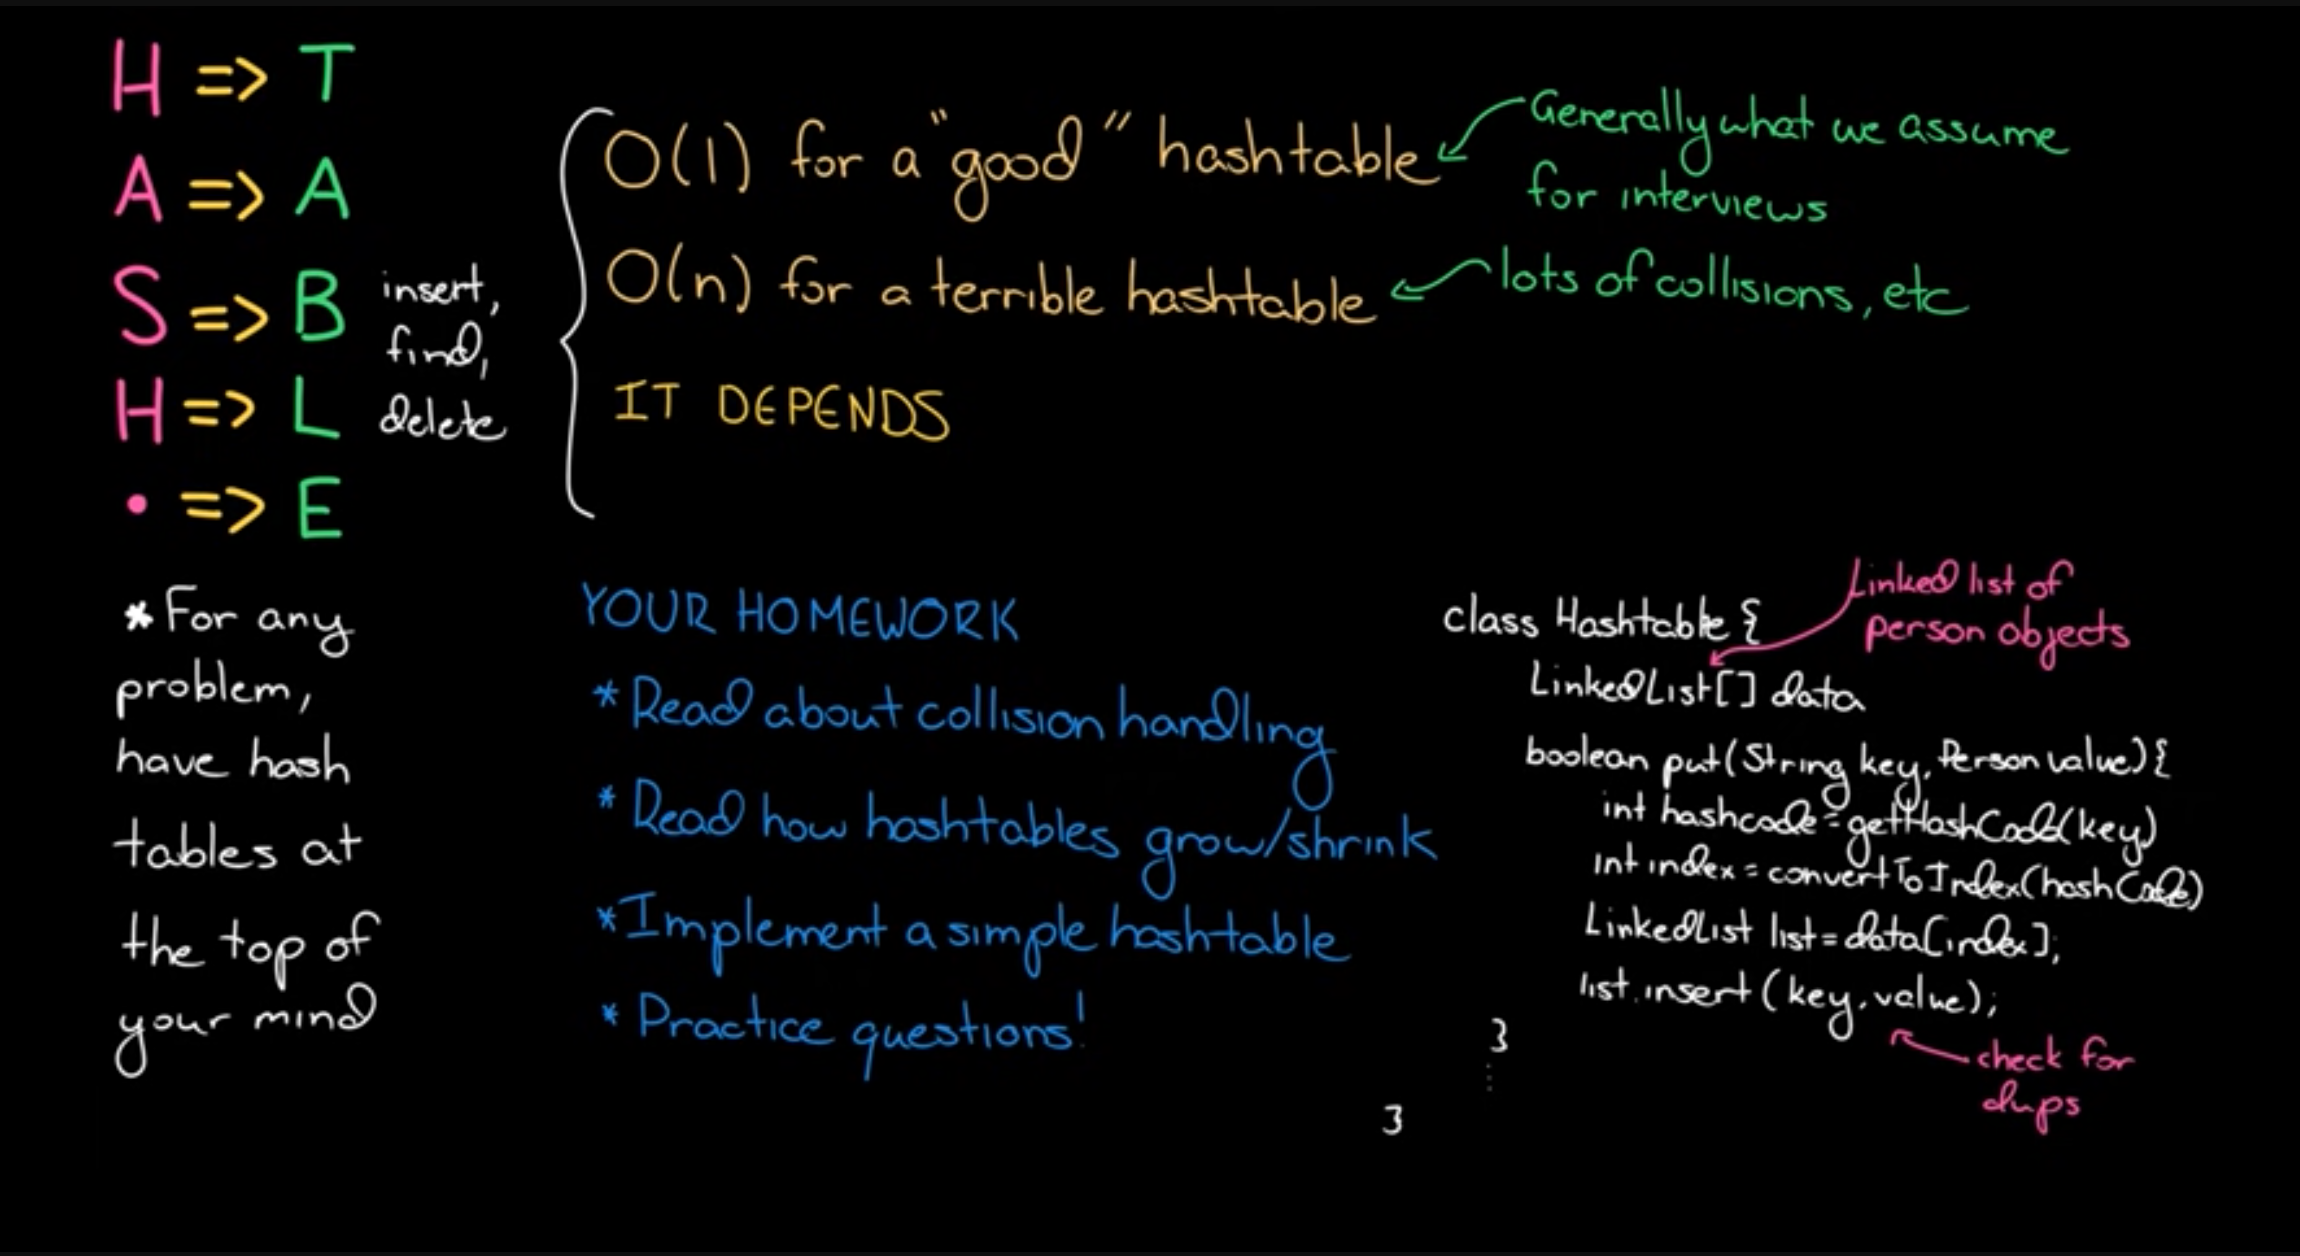 H => T
A => A
S => B
H => L
• => E
insert,
find,
delete
O(1) for a "good" hashtable
Generally what we assume
for interviews
O(n) for a terrible hashtable
lots of collisions, etc
IT DEPENDS
* For any
problem,
have hash
tables at
the top of
your mind
YOUR HOMEWORK
* Read about collision handling
* Read how hashtables grow/shrink
* Implement a simple hashtable
* Practice questions!
class Hashtable {
Linked list of
person objects
LinkedList[] data
boolean put(String key, Person value) {
int hashcode = getHashCode(key)
int index = convertToIndex(hashCode)
LinkedList list = data[index];
list.insert(key, value);
check for
dups
}
⋮
}